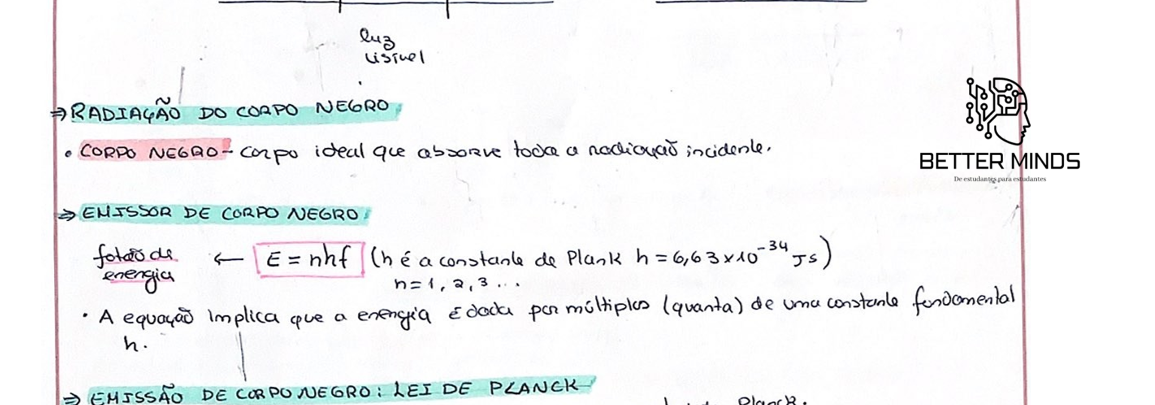 luz
visível
⇒ RADIAÇÃO DO CORPO NEGRO
• CORPO NEGRO - corpo ideal que absorve toda a radiação incidente.
BETTER MINDS
De estudantes para estudantes
⇒ EMISSOR DE CORPO NEGRO
fotão de energia ← E = nhf (h é a constante de Plank h = 6,63 x 10⁻³⁴ Js)
n = 1, 2, 3 ...
• A equação implica que a energia é dada por múltiplos (quanta) de uma constante fundamental
h.
⇒ EMISSÃO DE CORPO NEGRO: LEI DE PLANCK
Planck.